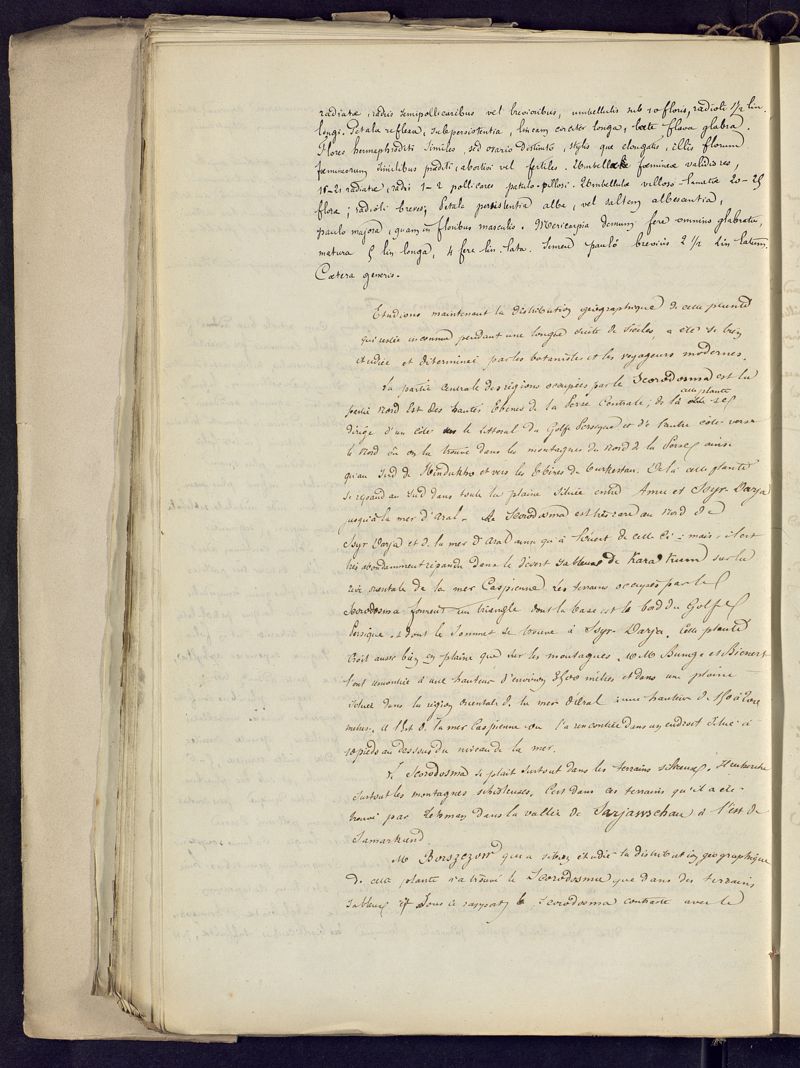 radiatae, radiis semipollicaribus vel brevioribus, umbellulis sub 10 floris, radioli 1½ lin.
longi. Petala reflexa, subpersistentia, lineam circiter longa, laete flava glabra.
Flores hermaphroditi similes, sed ovario distincto, stylis que elongatis, illis florum
foemineorum similibus praediti, abortivi vel fertiles. Umbellae foemineae validiores,
15-25 radiatae, radiis 1-2 pollicares patulo-pillosi. Umbellulae villoso-lanatae 20-25
florae; radioli breves, Petala persistentia alba, vel saltem albescentia,
paulo majora, quam in floribus masculis. Mericarpia demum fere omnino glabrata,
matura 5 lin longa, 4 fere lin. lata. Semen paulo brevius 2 1/2 lin latum.
Caetera generis.
Etudions maintenant la distribution géographique de cette plante
qui restée inconnue pendant une longue suite de siècles, a été si bien
étudiée et déterminée par les botanistes et les voyageurs modernes.
La partie centrale des régions occupées par le Scorodosma est la
partie Nord Est des hautes Ebènes de la Perse Centrale; de là cette plante se
dirige d'un côté vers le littoral du Golfe Persique et de l'autre côté vers
le Nord où on la trouve dans les montagnes du Nord de la Perse ainsi
qu'au Sud de Hindukho et vers les Ebènes du Turkestan. De là cette plante
se répand au Sud dans toute la plaine située entre Amu et Syr-Darja
jusqu'à la mer d'Aral. Le Scorodosma est très rare au Nord de
Syr Darja et de la mer d'Aral ainsi qu'à l'ouest de celle ci; mais il est
très abondamment répandu dans le désert sableux de Kara Kum sur la
rive orientale de la mer Caspienne. Les terrains occupés par le
Scorodosma forment un triangle dont la base est le bord du Golfe
Persique, et dont le sommet se trouve à Syr-Darja. Cette plante
croit aussi bien en plaine que sur les montagnes. MM Bunge et Bienert
l'ont rencontrée à une hauteur d'environ 3500 mètres et dans une plaine
située dans la région orientale de la mer d'Aral à une hauteur de 150 à 200
mètres. A l'Est de la mer Caspienne on l'a rencontrée dans un endroit situé à
10 pieds au dessous du niveau de la mer.
Le Scorodosma se plait surtout dans les terrains siliceux. Il recherche
surtout les montagnes schisteuses. C'est dans ces terrains qu'il a été
trouvé par Lehman dans la vallée de Sarjawschau à l'est de
Samarkand.
Mr Borszczow qui a si bien étudié la distribution géographique
de cette plante n'a trouvé le Scorodosma que dans des terrains
sableux et sous ce rapport le Scorodosma contraste avec le